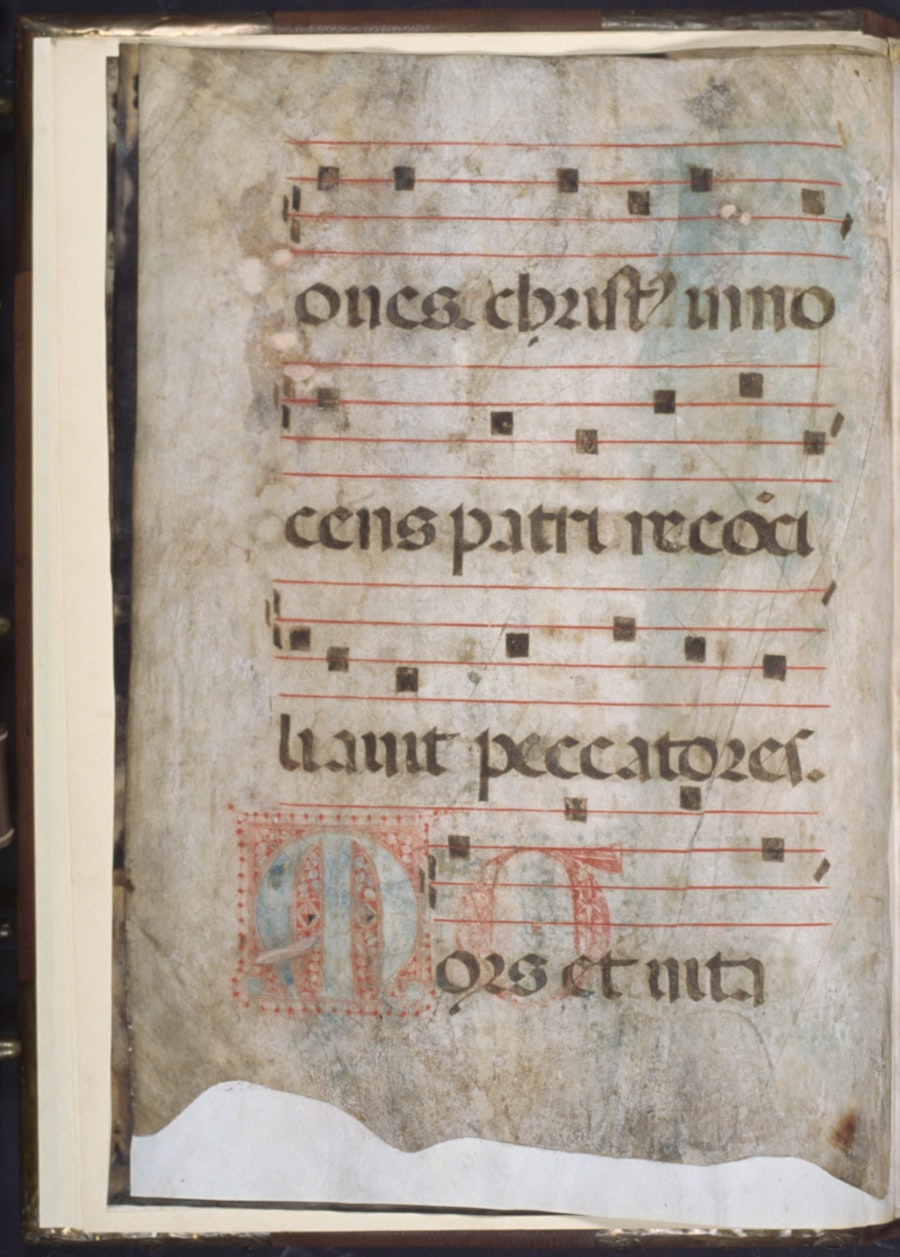 oues. christꝰ inno
cens patri recōci
liauit peccatores.
Mors et uita